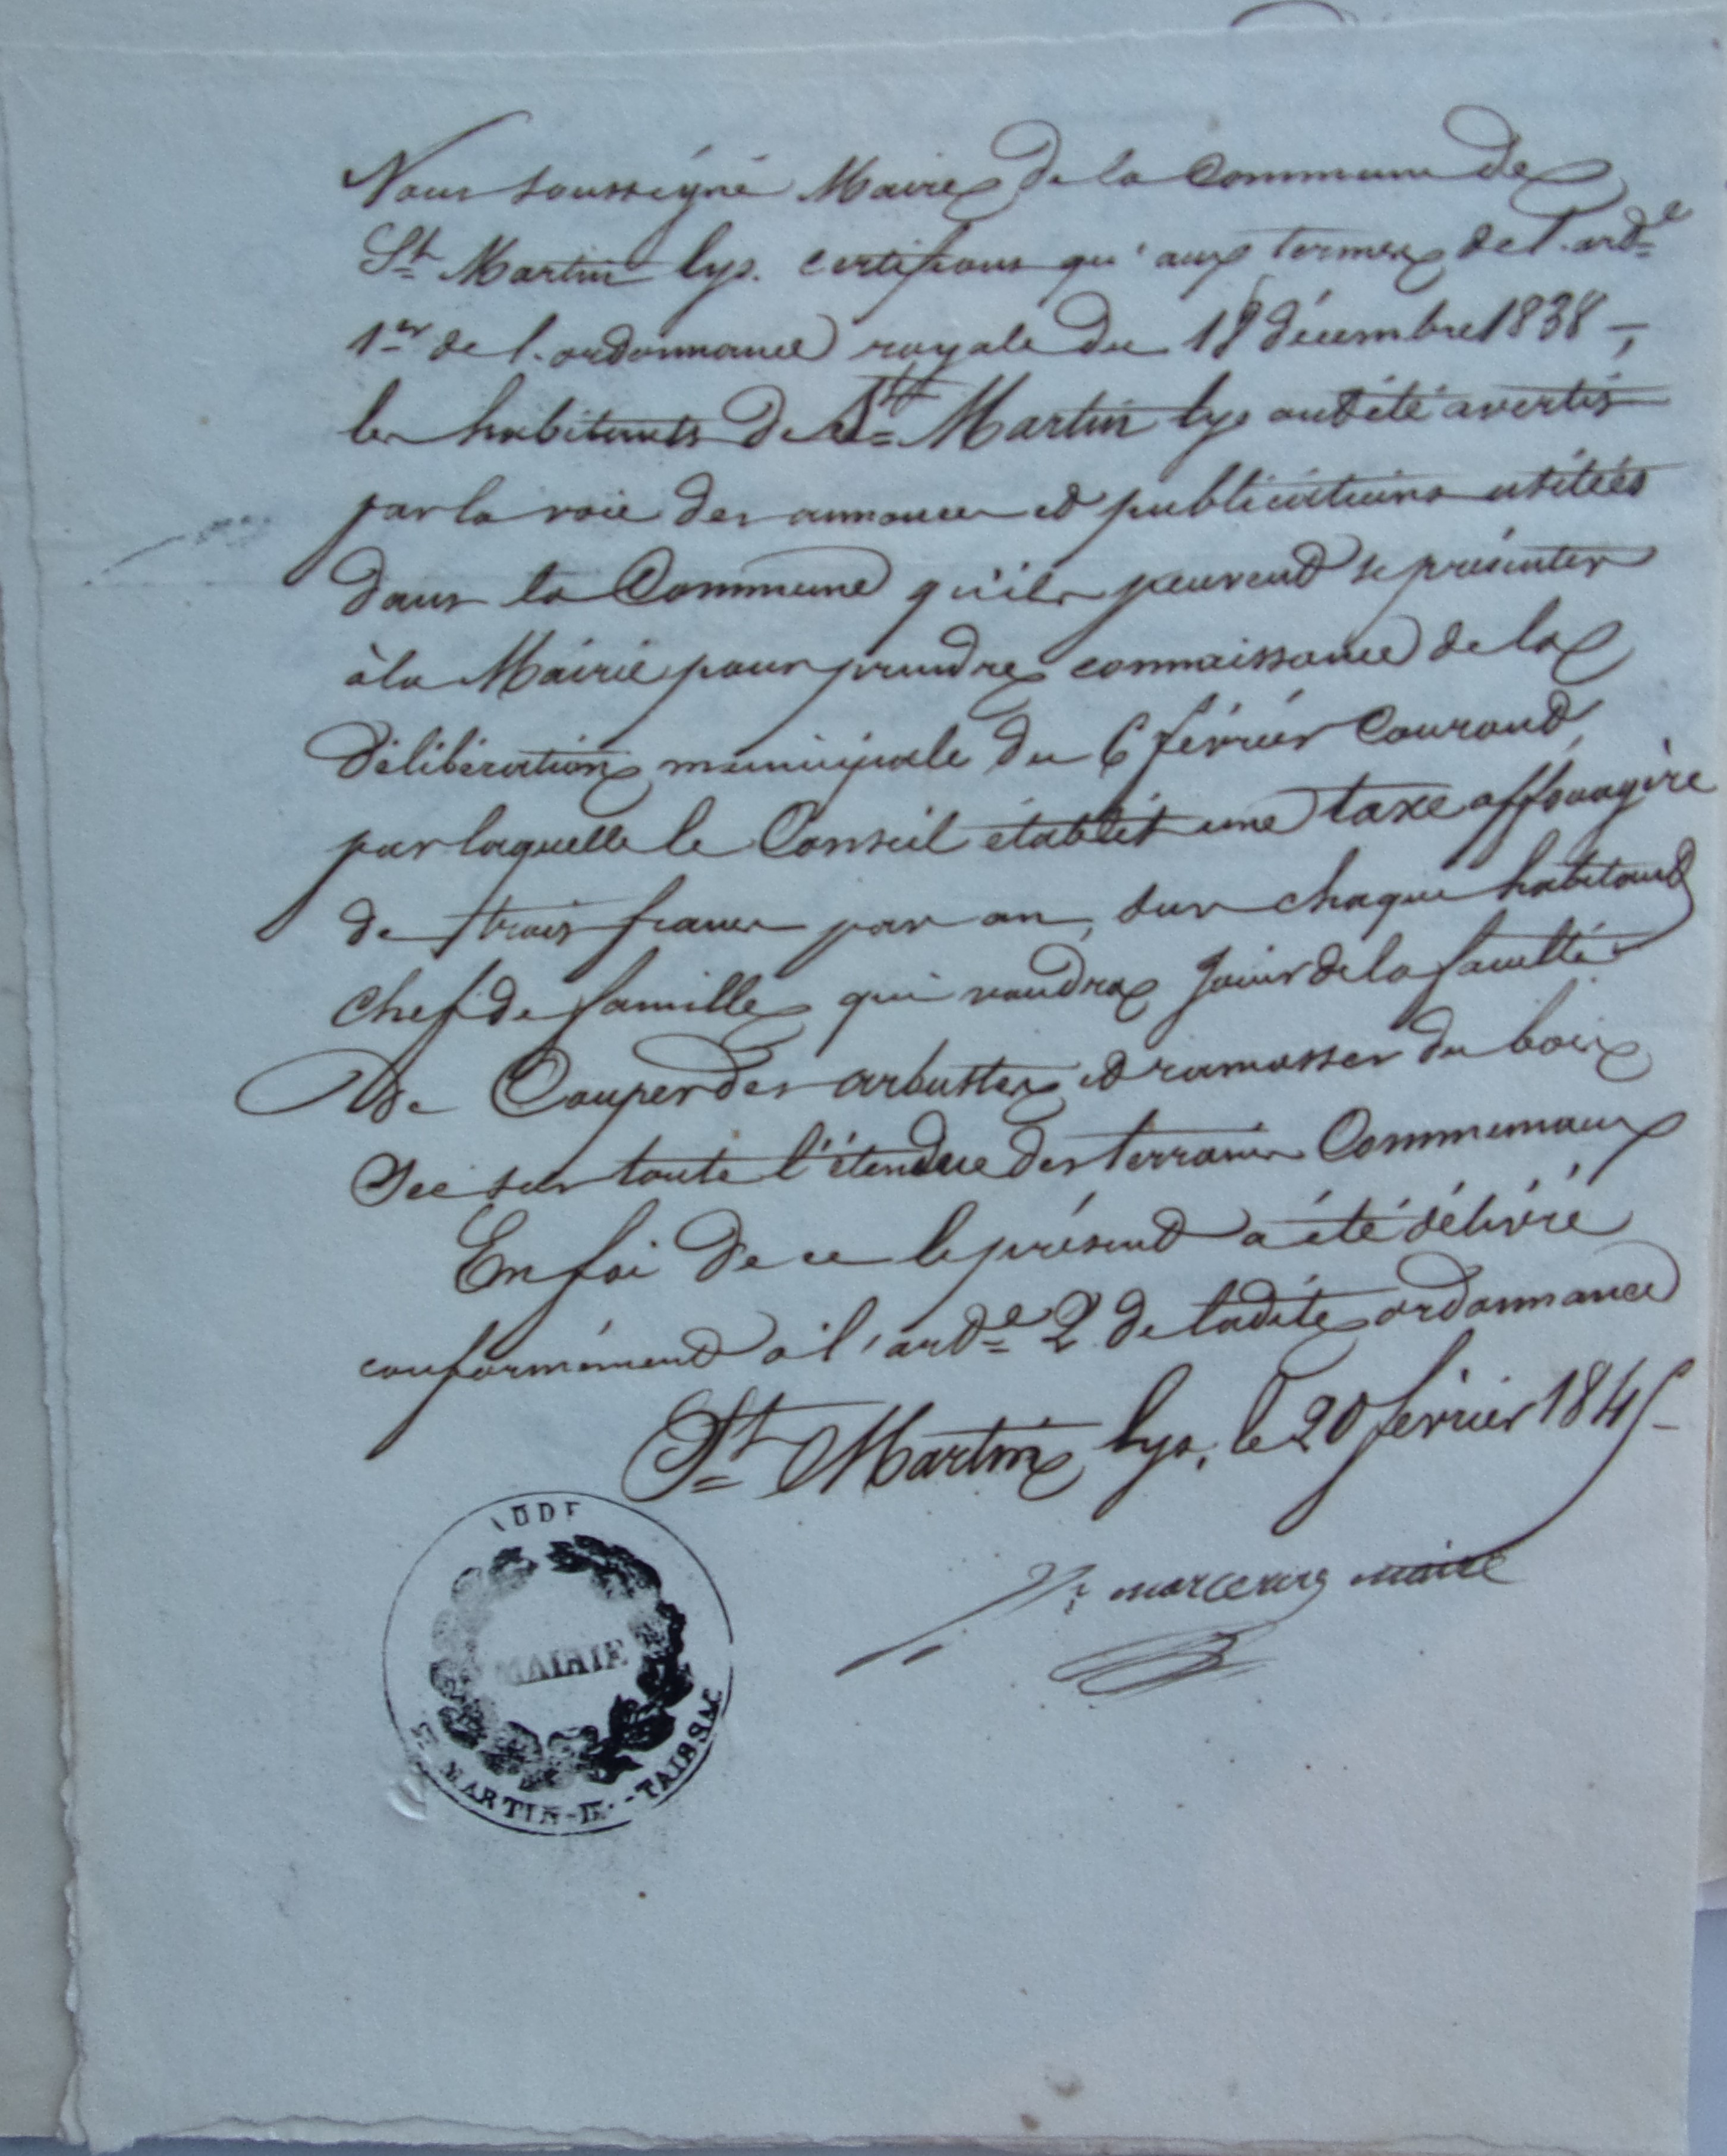 Nous soussigné Maire de la Commune de
St Martin lys. certifions qu'aux termes de l'ardᵉ
1er de l'ordonnance royale du 18 décembre 1838 -,
les habitants de St Martin lys ont été avertis
par la voie des annonces et publications usitées
dans la Commune qu'ils peuvent se présenter
à la Mairie pour prendre connaissance de la
délibération municipale du 6 février Courant,
par laquelle le Conseil établit une taxe affouagère
de trois francs par an, sur chaque habitant
chef de famille qui voudra Jouir de la faculté
de Couper des arbustes et ramasser du bois
Sec sur toute l'étendue des terrains Communaux
En foi de ce le présent a été délivré
conformément à l'ardᵉ 2 de ladite ordonnance
St Martin lys, le 20 février 1845-
maire
AUDE
MAIRIE
St MARTIN-DE-TAISSAC